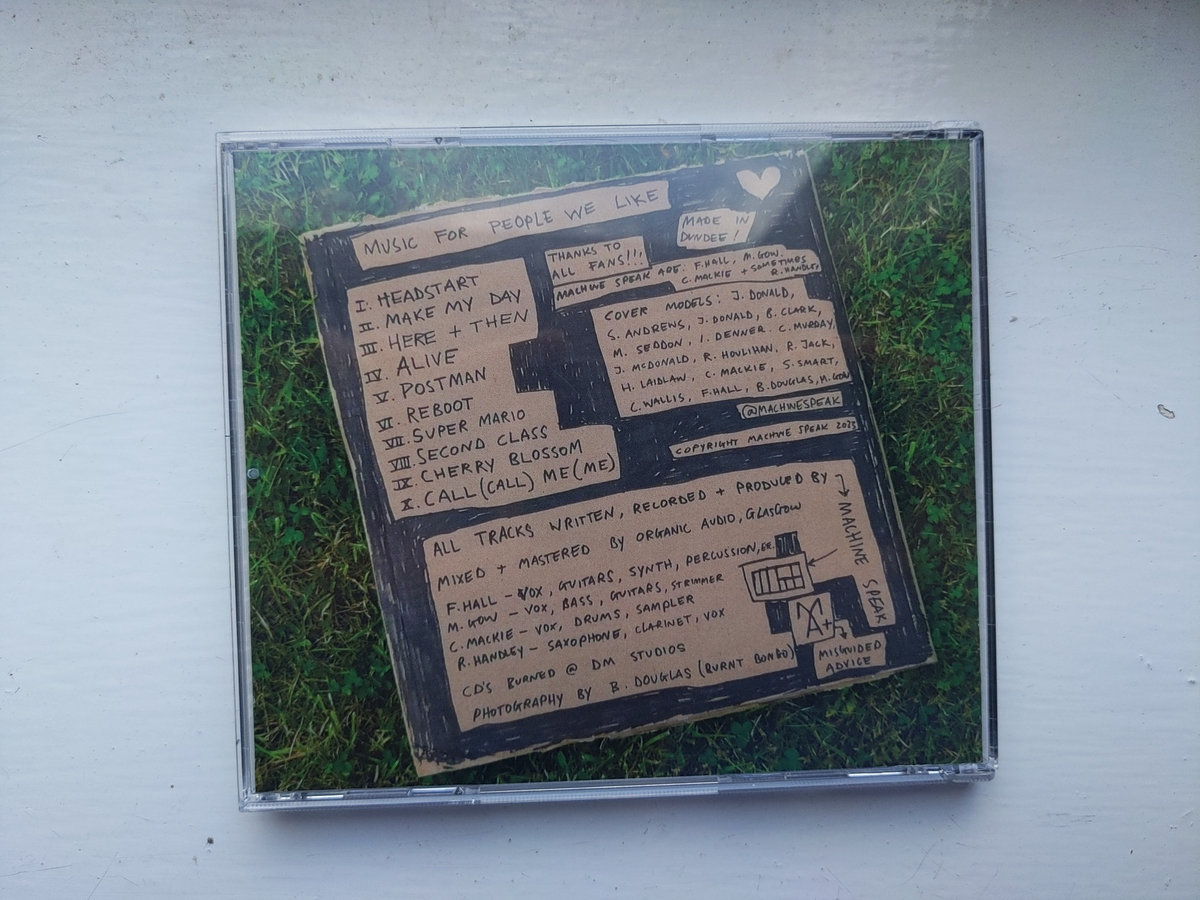 MUSIC FOR PEOPLE WE LIKE
MADE IN
DUNDEE!
I. HEADSTART
II. MAKE MY DAY
III. HERE + THEN
IV. ALIVE
V. POSTMAN
VI. REBOOT
VII. SUPER MARIO
VIII. SECOND CLASS
IX. CHERRY BLOSSOM
X. CALL (CALL) ME (ME)
THANKS TO
ALL FANS!!!
MACHINE SPEAK ARE: F.HALL, M.GOW.
C.MACKIE + SOMETIMES
R.HANDLEY
COVER MODELS: J.DONALD,
S. ANDREWS, J.DONALD, B.CLARK,
M. SEDDON, I. DENNER. C.MURDAY,
J. MCDONALD, R. HOULIHAN, R. JACK,
H. LAIDLAW, C. MACKIE, S.SMART,
C.WALLIS, F.HALL, B.DOUGLAS, M.GOW
@MACHINESPEAK
COPYRIGHT MACHINE SPEAK 2025
ALL TRACKS WRITTEN, RECORDED + PRODUCED BY
MACHINE SPEAK
MIXED + MASTERED BY ORGANIC AUDIO, GLASGOW
F.HALL – VOX, GUITARS, SYNTH, PERCUSSION,
M. GOW – VOX, BASS, GUITARS, STRIMMER
C.MACKIE – VOX, DRUMS, SAMPLER
R.HANDLEY – SAXOPHONE, CLARINET, VOX
CD'S BURNED @ DM STUDIOS
PHOTOGRAPHY BY B. DOUGLAS (BURNT BONGO)
A+
MISGUIDED
ADVICE